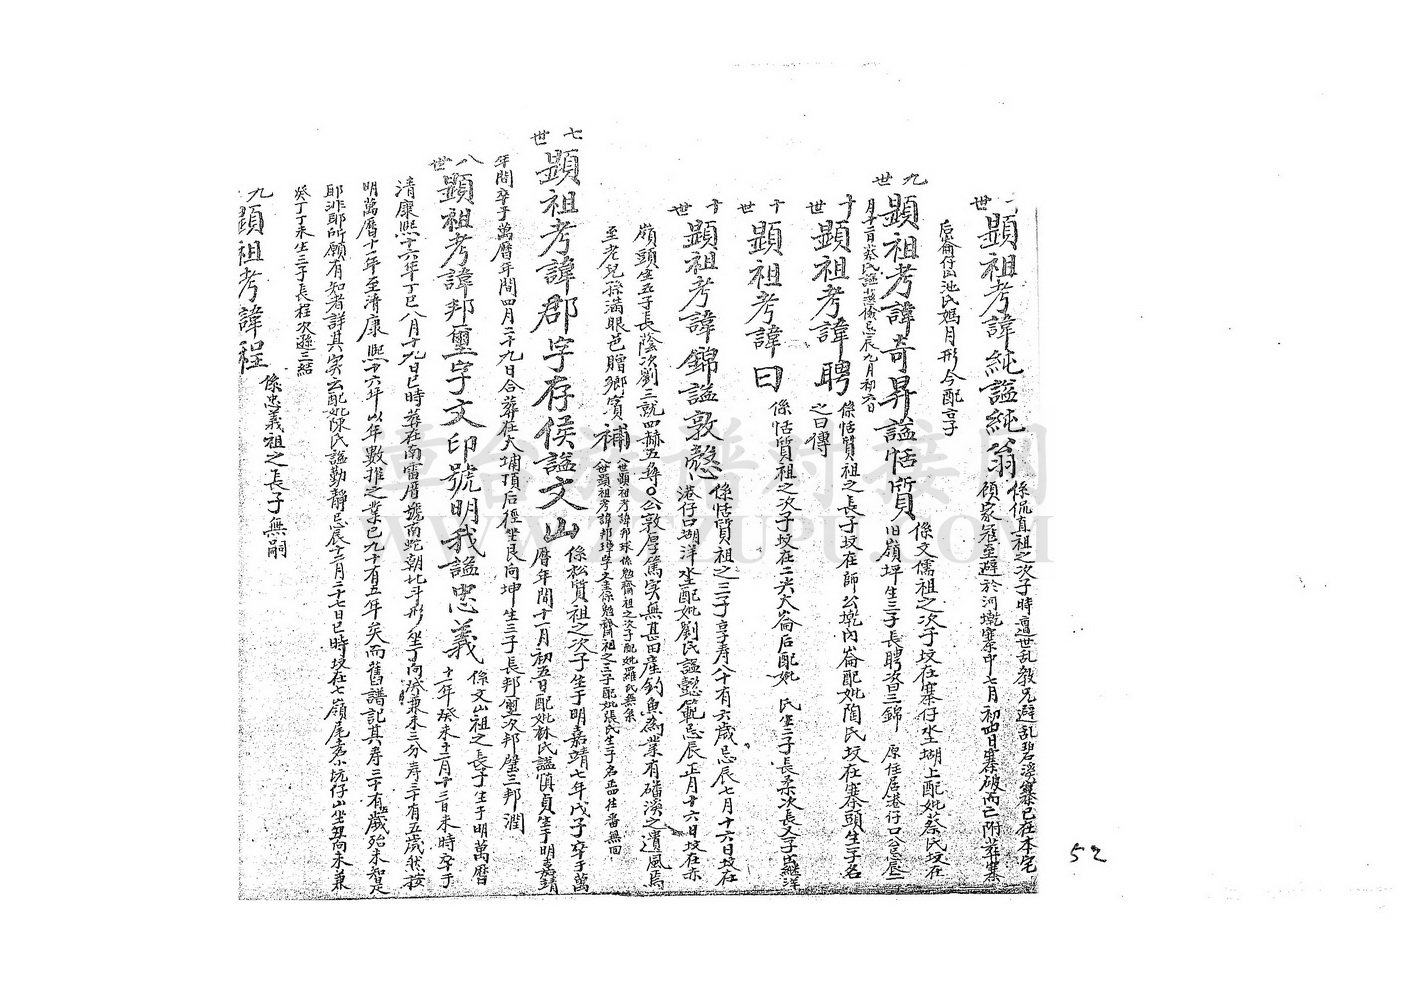 十世
顯祖考諱純謚純翁
係侃直祖之次子時遭世亂教兄避乱碧溪寨已在本宅
顧家冠至避於河墘寨中七月初四日寨破而亡附葬寨
后崙仔凶池氏媽月形今配享子
九世
顯祖考諱奇昇謚恬質
係文儒祖之次子坟在寨仔坐湖上配妣蔡氏坟在
旧嶺坪生三子長聘次曰三錦 原住居港仔口公忌辰二
月十二日蔡氏謚慈儉忌辰九月初六日
十世
顯祖考諱聘
係恬質祖之長子坟在師公墘內崙配妣陶氏坟在寨頭生子名
之曰傳
十世
顯祖考諱曰
係恬質祖之次子坟在二尖大崙后配妣 氏生二子長柔次長
十世
顯祖考諱錦謚敦愨
係恬質祖之三子享寿八十有六歲忌辰七月十六日坟在
港仔口湖洋坐配妣劉氏謚懿範忌辰正月十六日坟在赤
嶺頭生五子長陰次劉三就四赫五尋公敦厚篤实無甚田產釣魚為業有磻溪之遺風焉
至老兒孫滿眼邑贈鄉賓
補
八世顯祖考諱邦球係勉齋祖之次子配妣羅氏無系
八世顯祖考諱邦璋字文圭係勉齋祖之三子配妣張氏生二子名 往番無回
七世
顯祖考諱郡字存侯謚文山
係松質祖之次子生于明嘉靖七年戊子卒于萬
曆年間十一月初五日配妣林氏謚慎貞生于明嘉靖
年間卒于萬曆年間四月二十九日合葬在大埔頂后徑坐艮向坤生三子長邦璽次邦璧三邦潤
八世
顯祖考諱邦璽字文印號明我謚忠義
係文山祖之長子生于明萬曆
十一年癸未十二月十三日未時卒于
清康熙十六年丁巳八月十九日巳時葬在南雷厝墘南蛇朝北斗形坐丁向癸兼未三分寿三十有五歲然按
明萬曆十一年至清康熙十六年以年數推之業已九十有五年矣而舊譜記其寿三十有五歲殆未知是
耶非耶所願有知者詳其实云配妣陳氏謚勤靜忌辰十二月二十七日巳時坟在七嶺尾 小坑仔山坐丑向未兼
癸丁丁未生三子長程次遜三結
九
顯祖考諱程
係忠義祖之長子無嗣
52
臺台族譜對接网
WWW.TZUPU.COM